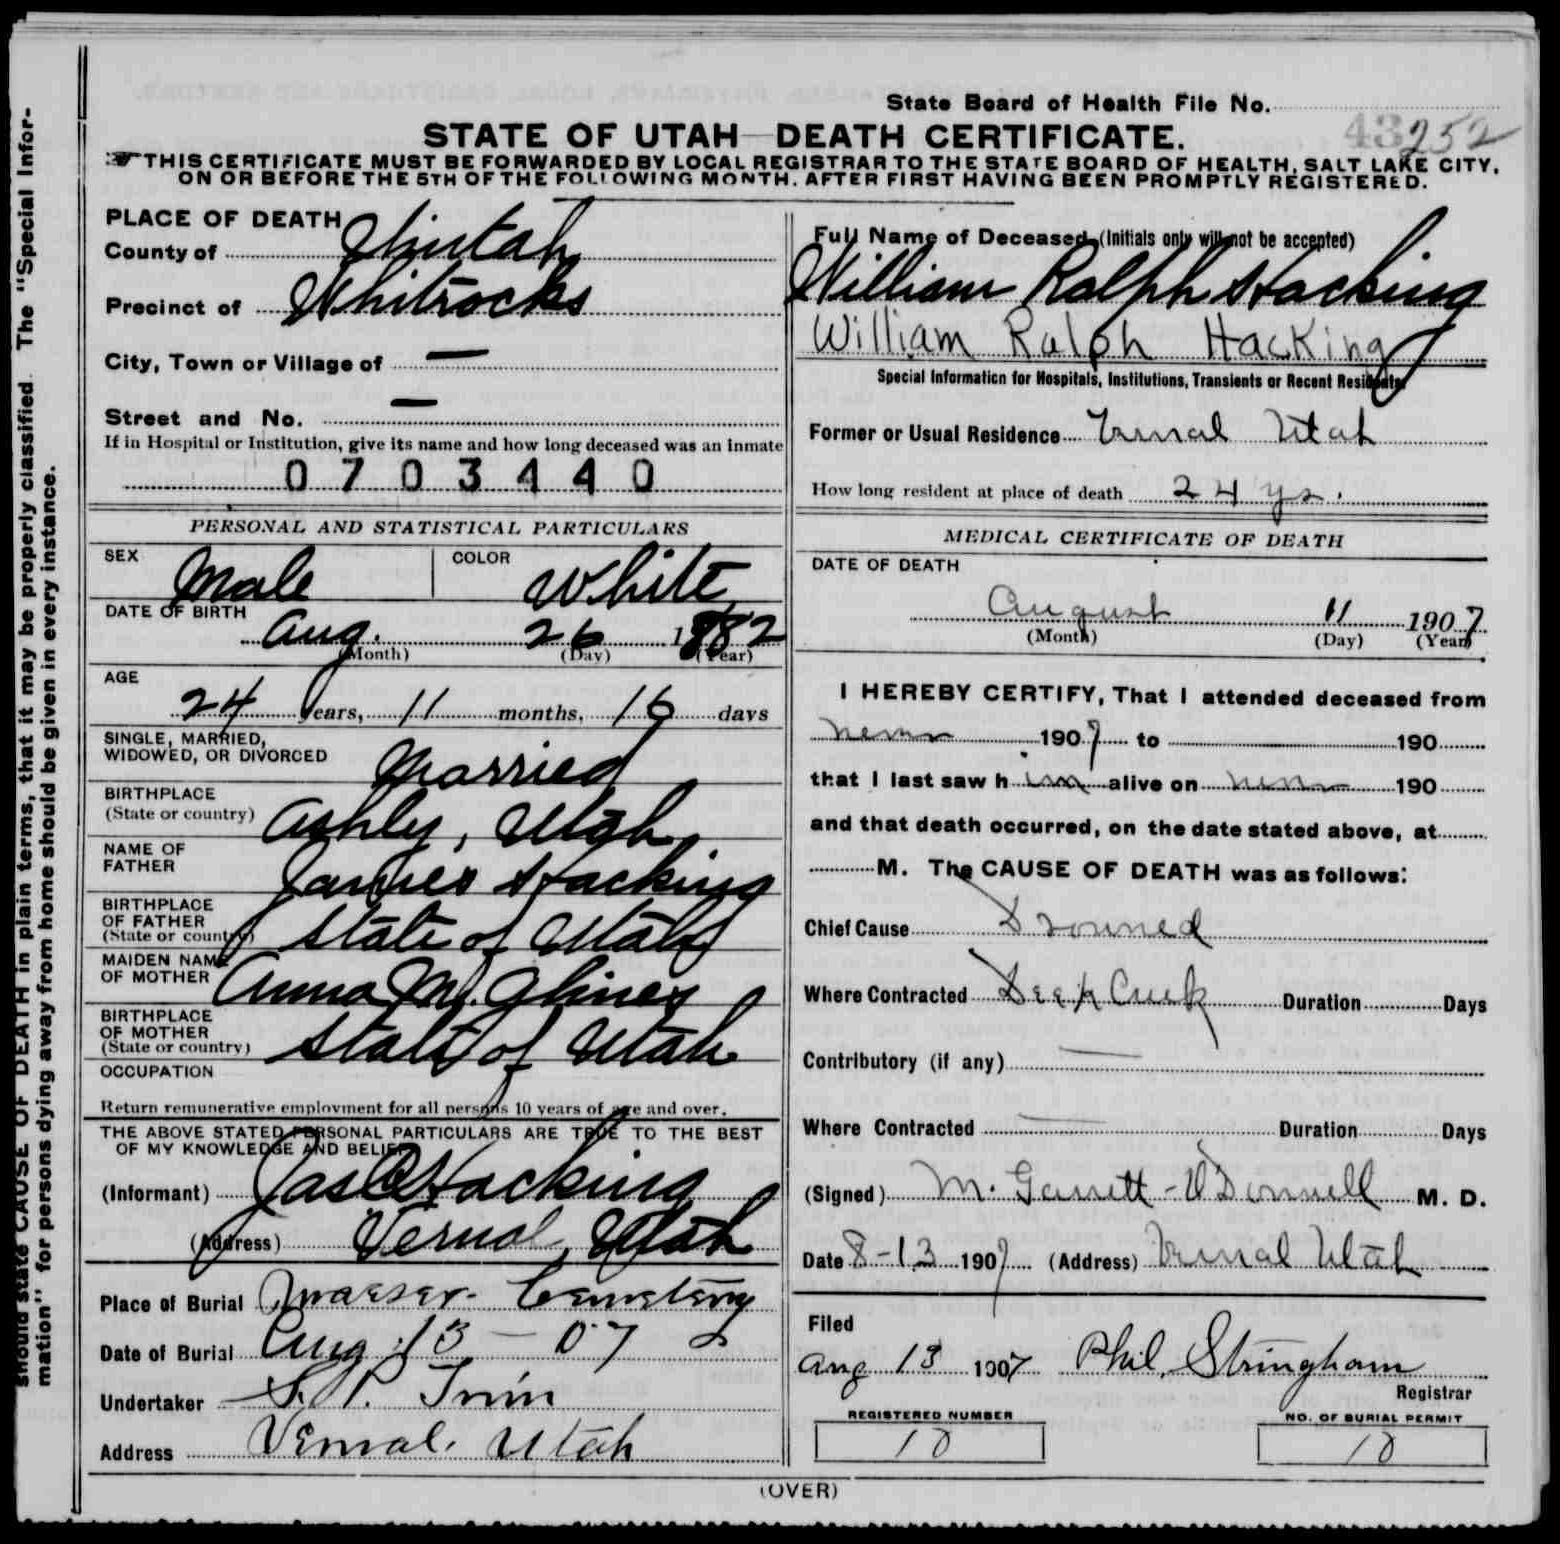 State Board of Health File No.
43 252
STATE OF UTAH—DEATH CERTIFICATE.
THIS CERTIFICATE MUST BE FORWARDED BY LOCAL REGISTRAR TO THE STATE BOARD OF HEALTH, SALT LAKE CITY,
ON OR BEFORE THE 5TH OF THE FOLLOWING MONTH. AFTER FIRST HAVING BEEN PROMPTLY REGISTERED.
PLACE OF DEATH
County of Uintah
Precinct of Whitrocks
City, Town or Village of —
Street and No. —
If in Hospital or Institution, give its name and how long deceased was an inmate
0703440
PERSONAL AND STATISTICAL PARTICULARS
SEX Male COLOR White
DATE OF BIRTH
Aug. 26 1882
(Month) (Day) (Year)
AGE
24 years, 11 months, 16 days
SINGLE, MARRIED,
WIDOWED, OR DIVORCED Married
BIRTHPLACE
(State or country) Ashley, Utah
NAME OF
FATHER James Hacking
BIRTHPLACE
OF FATHER
(State or country) State of Utah
MAIDEN NAME
OF MOTHER Anna M. Glines
BIRTHPLACE
OF MOTHER
(State or country) State of Utah
OCCUPATION
Return remunerative employment for all persons 10 years of age and over.
THE ABOVE STATED PERSONAL PARTICULARS ARE TRUE TO THE BEST
OF MY KNOWLEDGE AND BELIEF
(Informant) Jas Hacking
(Address) Vernal, Utah
Place of Burial Maeser Cemetery
Date of Burial Aug 13 - 07
Undertaker
Address Vernal. Utah
Full Name of Deceased (Initials only will not be accepted)
William Ralph Hacking
William Ralph Hacking
Special Information for Hospitals, Institutions, Transients or Recent Residents
Former or Usual Residence Vernal Utah
How long resident at place of death 24 ys.
MEDICAL CERTIFICATE OF DEATH
DATE OF DEATH
August 11 1907
(Month) (Day) (Year)
I HEREBY CERTIFY, That I attended deceased from
never 1907 to 190
that I last saw h im alive on never 190
and that death occurred, on the date stated above, at
M. The CAUSE OF DEATH was as follows:
Chief Cause Drowned
Where Contracted Deep Creek Duration Days
Contributory (if any) —
Where Contracted — Duration Days
(Signed) M. Garrett-O'Donnell M. D.
Date 8-13 1907 (Address) Vernal Utah
Filed
Aug 13 1907 Phil. Stringham
Registrar
REGISTERED NUMBER
10
NO. OF BURIAL PERMIT
10
(OVER)
should state CAUSE OF DEATH in plain terms, that it may be properly classified. The "Special Infor-
mation" for persons dying away from home should be given in every instance.